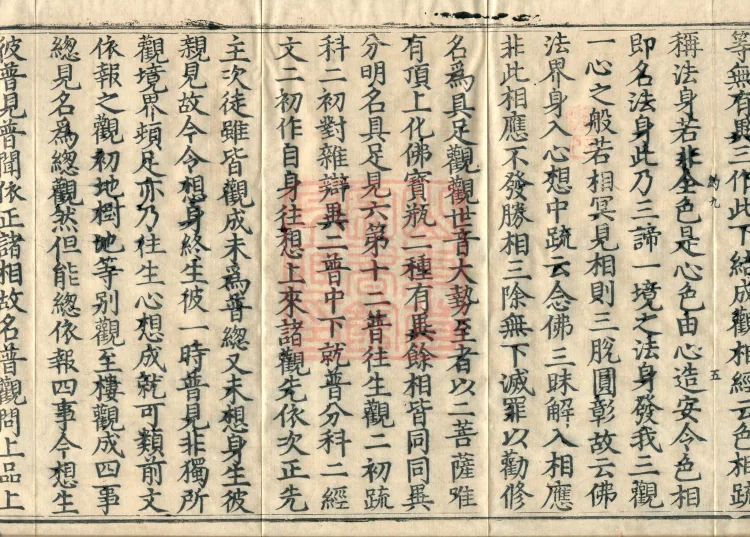 等無有異三作此下結成觀相經云色相疏
稱法身若非全色是心色由心造安今色相
即名法身此乃三諦一境之法身發我三觀
一心之般若相冥見相則三脫圓彰故云佛
法界身入心想中疏云念佛三昧解入相應
非此相應不發勝相三除無下滅罪以勸修
名爲具足觀觀世音大勢至者以二菩薩唯
有頂上化佛寶瓶二種有異餘相皆同同異
分明名具足見六第十二普往生觀二初疏
科二初對雜辯異二普中下就普分科二經
文二初作自身往想上來諸觀先依次正先
主次徒雖皆觀成未爲普緫又未想身生彼
親見故今令想身終生彼一時普見非獨所
觀境界頻足亦乃往生心想成就可類前文
依報之觀初地樹地等別觀至樓觀成四事
緫見名爲緫觀然但能緫依報四事今想生
彼普見普聞依正諸相故名普觀問上品上
五